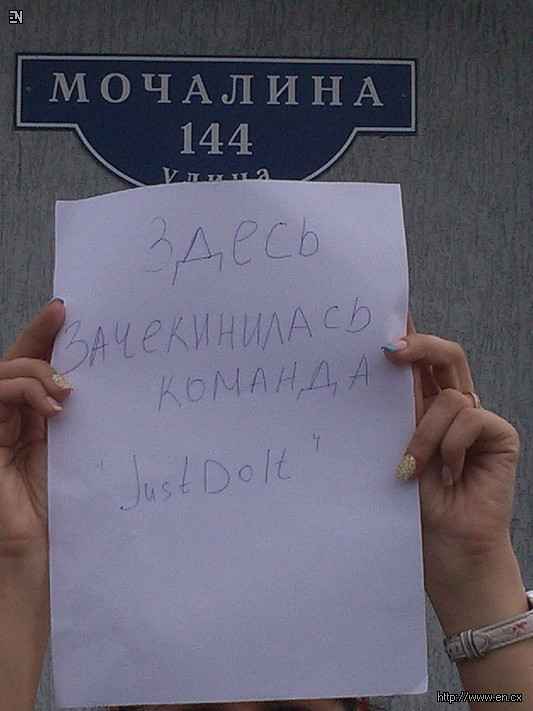 EN
МОЧАЛИНА
144
улица
Здесь
зачекинилась
команда
"JustDoIt"
http://www.en.cx